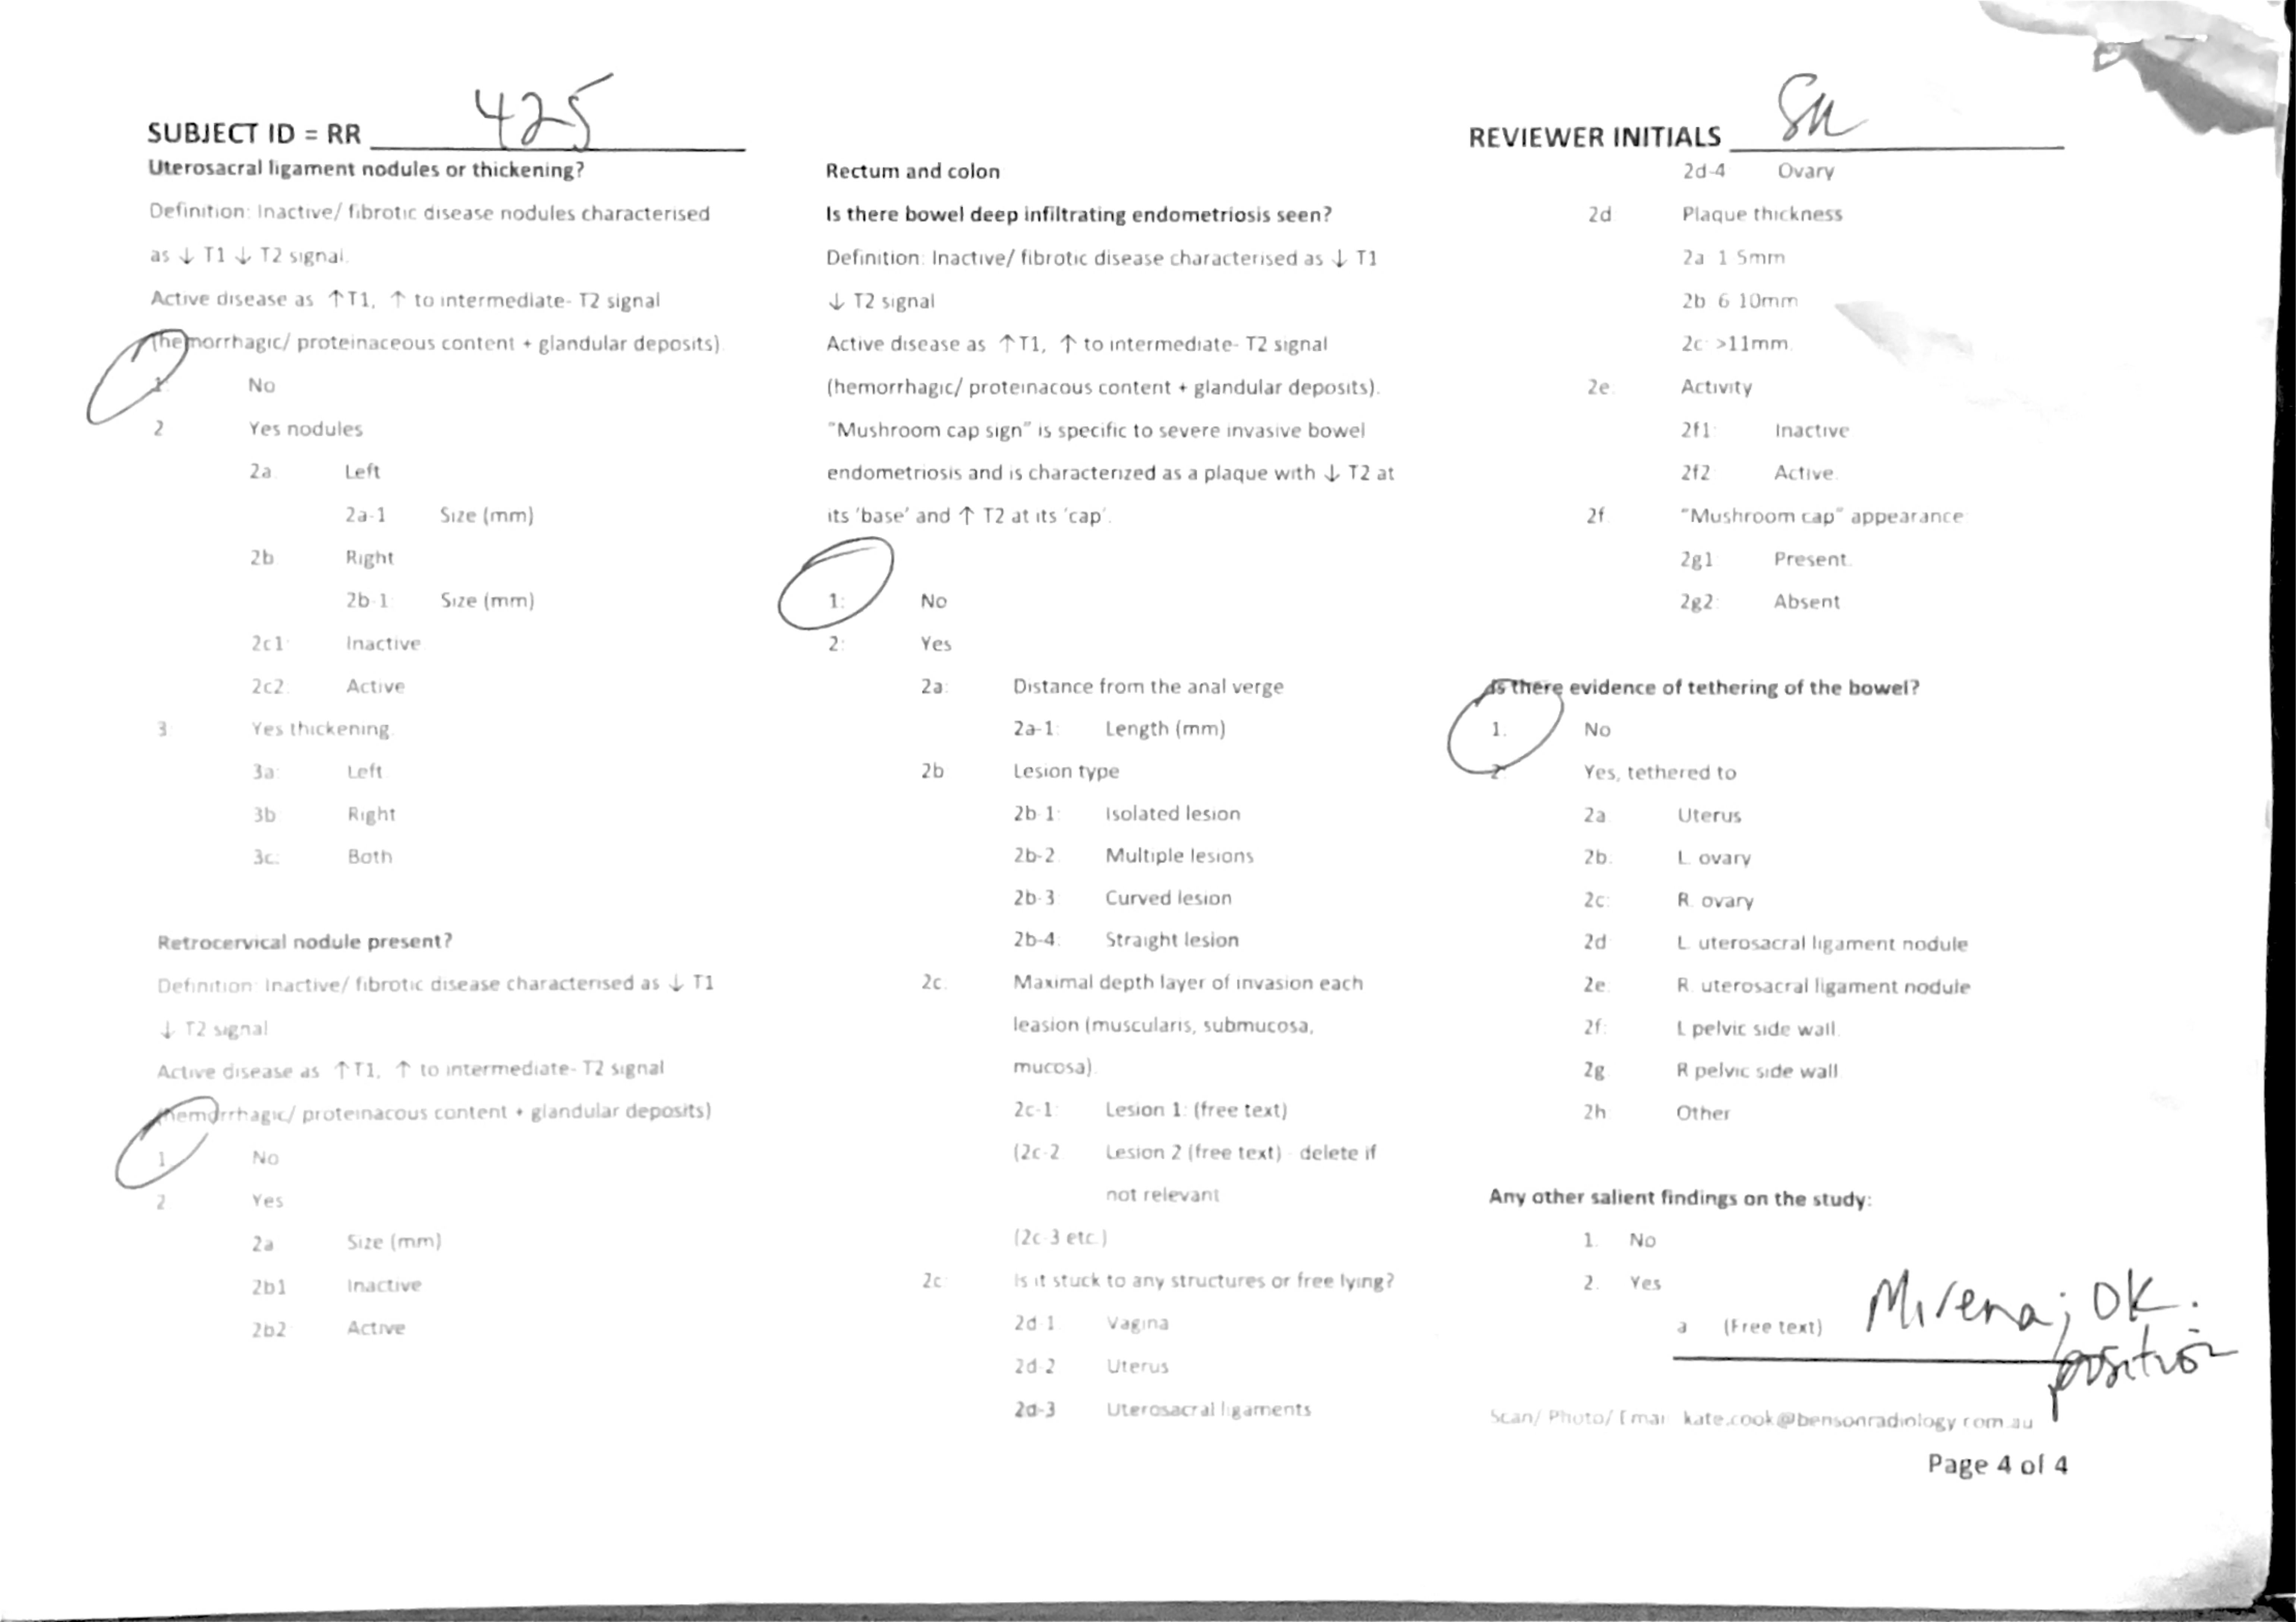 SUBJECT ID = RR 425
Uterosacral ligament nodules or thickening?
Definition: Inactive/ fibrotic disease nodules characterised
as ↓ T1 ↓ T2 signal.
Active disease as ↑T1, ↑ to intermediate- T2 signal
(hemorrhagic/ proteinaceous content + glandular deposits).
1. No
2 Yes nodules
2a. Left
2a-1 Size (mm)
2b Right
2b-1: Size (mm)
2c1: Inactive
2c2. Active
3: Yes thickening.
3a: Left
3b: Right
3c: Both
Retrocervical nodule present?
Definition: Inactive/ fibrotic disease characterised as ↓ T1
↓ T2 signal
Active disease as ↑T1, ↑ to intermediate- T2 signal
(hemorrhagic/ proteinacous content + glandular deposits)
1 No
2 Yes
2a Size (mm)
2b1 Inactive
2b2 Active
Rectum and colon
Is there bowel deep infiltrating endometriosis seen?
Definition: Inactive/ fibrotic disease characterised as ↓ T1
↓ T2 signal
Active disease as ↑T1, ↑ to intermediate- T2 signal
(hemorrhagic/ proteinacous content + glandular deposits).
"Mushroom cap sign" is specific to severe invasive bowel
endometriosis and is characterized as a plaque with ↓ T2 at
its 'base' and ↑ T2 at its 'cap'.
1: No
2: Yes
2a: Distance from the anal verge
2a-1: Length (mm)
2b Lesion type
2b-1: Isolated lesion
2b-2. Multiple lesions
2b-3 Curved lesion
2b-4: Straight lesion
2c: Maximal depth layer of invasion each
leasion (muscularis, submucosa,
mucosa).
2c-1: Lesion 1: (free text)
(2c-2 Lesion 2 (free text) - delete if
not relevant
(2c-3 etc.)
2c: Is it stuck to any structures or free lying?
2d-1. Vagina
2d-2 Uterus
2d-3 Uterosacral ligaments
REVIEWER INITIALS
2d-4 Ovary
2d Plaque thickness
2a 1 5mm
2b 6 10mm
2c: >11mm.
2e: Activity
2f1: Inactive
2f2 Active.
2f. "Mushroom cap" appearance
2g1: Present.
2g2: Absent
Is there evidence of tethering of the bowel?
1. No
2 Yes, tethered to
2a. Uterus
2b: L. ovary
2c: R. ovary
2d L. uterosacral ligament nodule
2e: R. uterosacral ligament nodule
2f: L pelvic side wall.
2g R pelvic side wall.
2h Other
Any other salient findings on the study:
1. No
2. Yes
a (Free text) Mirena; OK.
position
Scan/ Photo/ Emai kate.cook@bensonradiology.com.au
Page 4 of 4